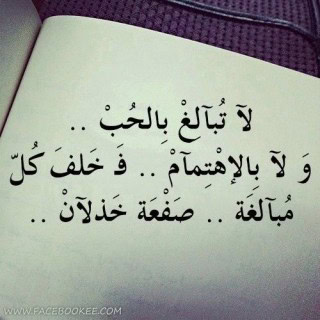 لآ تُبآلغْ بِالحُبْ ..
وَ لآ بِالإهْتِمآمْ .. فَـ خَلفَ كُلّ
مُبآلغَة .. صَفْعَة خَذلآنْ ..
WWW.FACEBOOKEE.COM